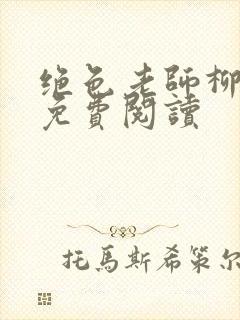 绝色老師柳
免費閱讀
托馬斯希策尔